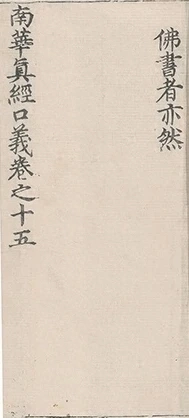 佛書者亦然
南華真經口義卷之十五